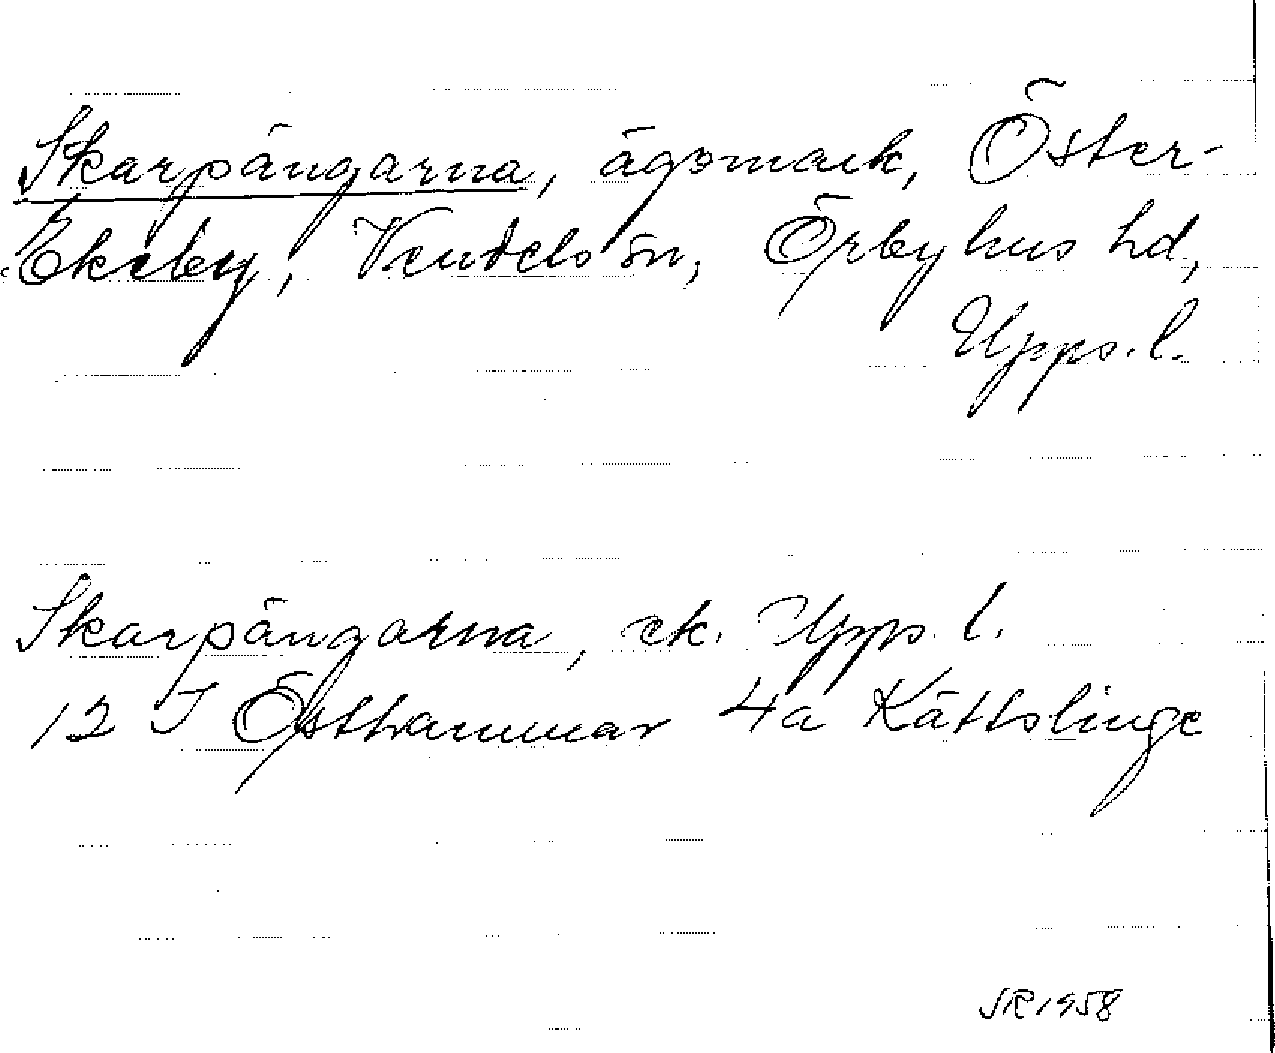 Skarpängarna, ägomark, Öster-
Ekeby, Vendels sn, Örbyhus hd,
Upps. l.
Skarpängarna, ek. Upps. l.
12 I Östhammar 4a Kättslinge
SR 1958